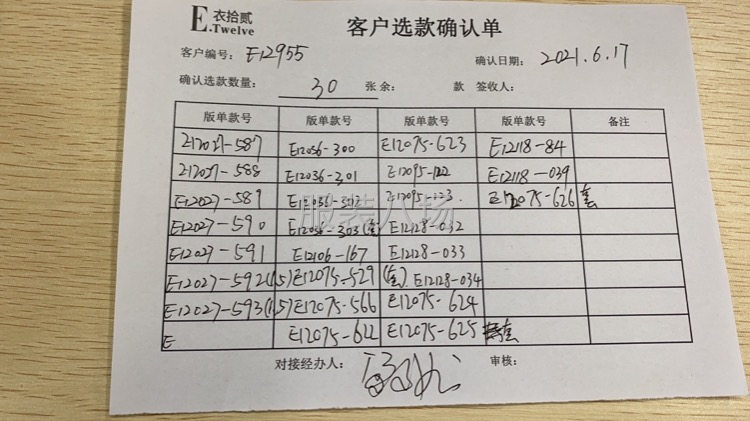 E.衣拾贰
Twelve
客户选款确认单
客户编号: E12955
确认日期: 2021.6.17
确认选款数量: 30 张 余: 款 签收人:
版单款号 版单款号 版单款号 版单款号 备注
E12027-587 E12036-300 E12075-623 E12118-84
E12027-588 E12036-301 E12095-122 E12118-039
E12027-589 E12036-302 E12095-123. E12075-626 套
E12027-590 E12036-303(套) E12128-032
E12027-591 E12106-167 E12128-033
E12027-592(1.5) E12075-529(套) E12128-034
E12027-593(1.5) E12075-566 E12075-624
E E12075-622 E12075-625 套
对接经办人: 审核:
服装八场